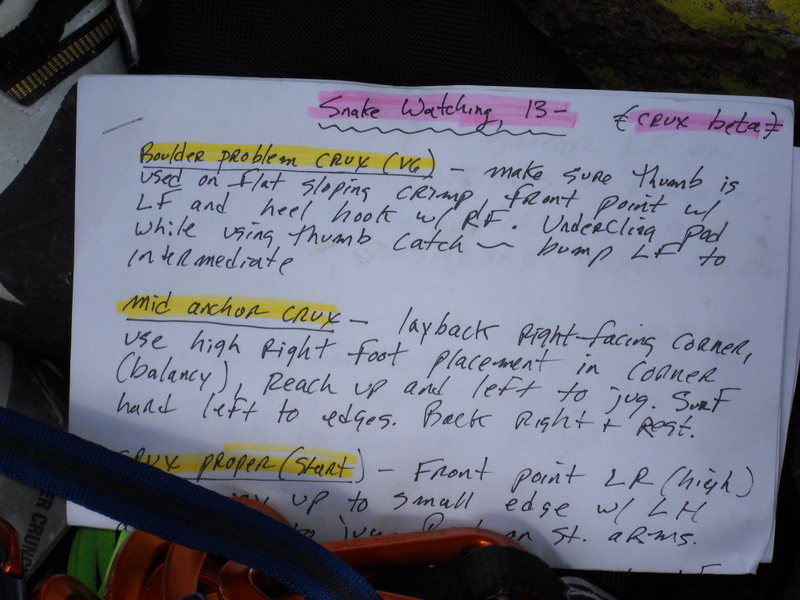 Snake Watching, 13- {CRUX beta}
Boulder problem CRUX (V6) - make sure thumb is
used on flat sloping crimp, front point w/
LF and heel hook w/ RF. Undercling pad
while using thumb catch - bump LF to
intermediate
mid anchor CRUX - layback right-facing corner,
use high right foot placement in corner
(balancy), Reach up and left to jug. Surf
hard left to edges. Back Right + Rest.
CRUX proper (start) - Front point LR (high)
up to small edge w/ LH
to jug. on st. arms.